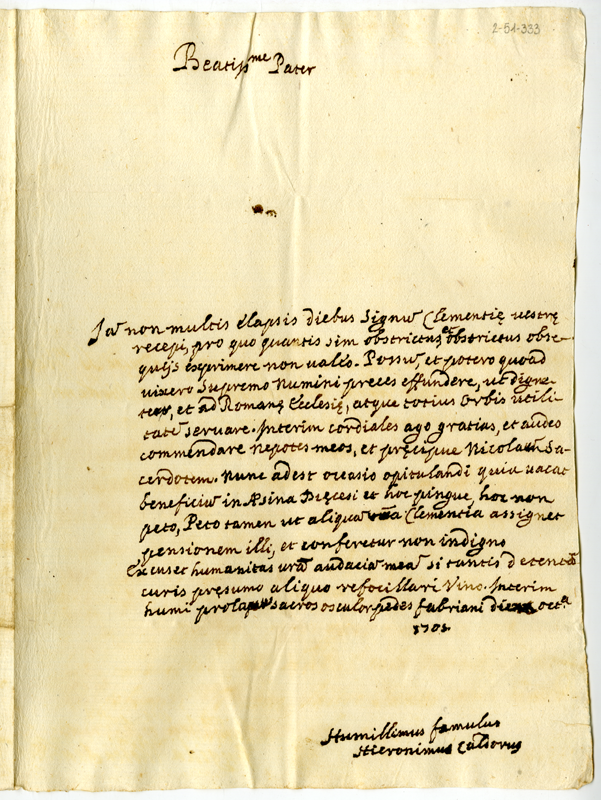 2-51-333
Beatiss.me Pater
Iā non multis elapsis diebus Signū Clementię vestrę
recepi, pro quo quantis sim obstrictus, et obstrictus obse-
quijs exprimere non valeo. Possū, et potero quoad
vixero Supremo Numini preces effundere, ut digne-
tur, et ad Romanę Ecclesię, atque totius Orbis utili
tatē servare. Interim cordiales ago gratias, et audeo
commendare Nepotes meos, et pręcipue Nicolaum Sa-
cerdotem. Nunc adest ocasio opitulandi quia vacat
beneficiū in Æsina Dięcesi et hoc pingue, hoc non
peto, Peto tamen ut aliquā vrā Clementia assignet
pensionem illi, et conferetur non indigno
Excuset humanitas vrā audaciā meā si tantis detentā
curis pręsumo aliquo refocillari Vino. Interim
humi prolapsus sacros osculor pedes Fabriani die oct.a
1701
Humillimus famulus
Hieronimus